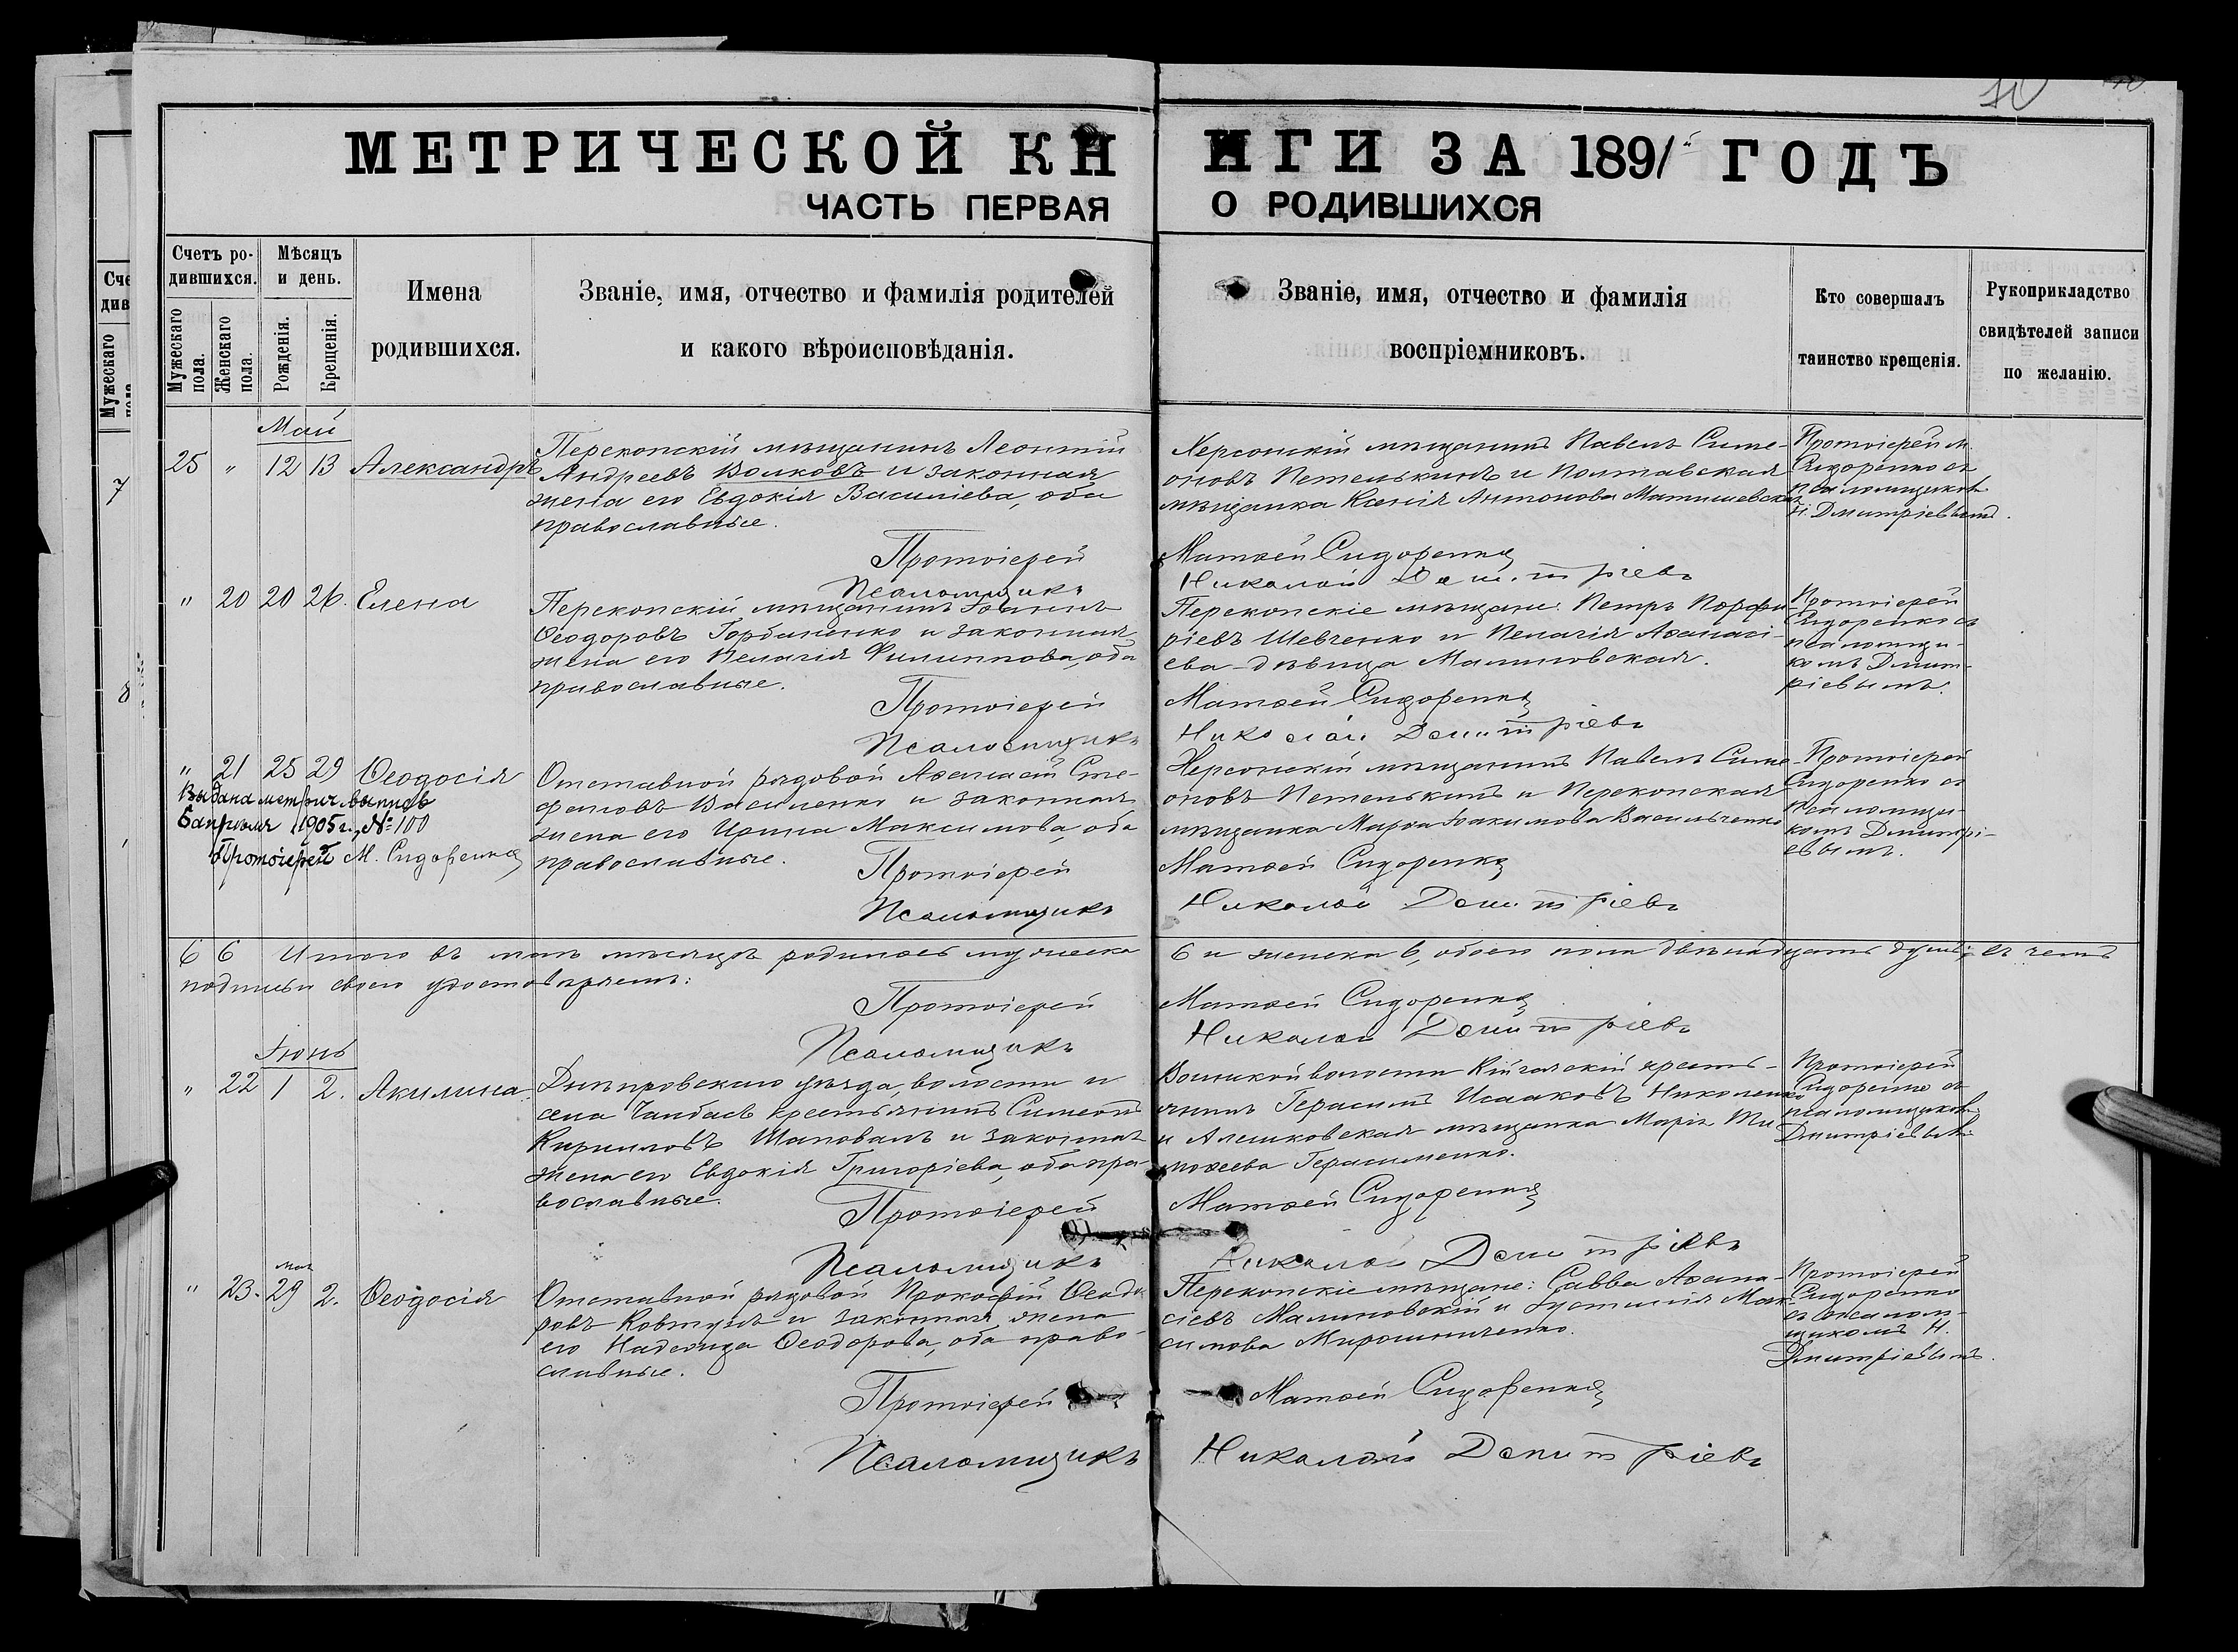 МЕТРИЧЕСКОЙ КНИГИ ЗА 1891 ГОДЪ
ЧАСТЬ ПЕРВАЯ О РОДИВШИХСЯ
Счетъ ро-
дившихся.
Мужескаго пола.
Женскаго пола.
Мѣсяцъ
и день.
Рожденія.
Крещенія.
Имена
родившихся.
Званіе, имя, отчество и фамилія родителей
и какого вѣроисповѣданія.
Званіе, имя, отчество и фамилія
воспріемниковъ.
Кто совершалъ
таинство крещенія.
Рукоприкладство
свидѣтелей записи
по желанію.
Май
25 " 12 13 Александръ
Перекопскій мѣщанинъ Леонтій
Андреевъ Волковъ и законная
жена его Евдокія Василіева, оба
православные.
Херсонскій мѣщанинъ Павелъ Симе-
оновъ Петелькинъ и Полтавская
мѣщанка Ксенія Антонова
Протоіерей М.
Сидоренко съ
псаломщикомъ
Н. Дмитріевымъ.
Протоіерей Матѳей Сидоренко
Псаломщикъ Николай Дмитріевъ
" 20 20 26. Елена
Перекопскій мѣщанинъ Іоаннъ
Ѳеодоровъ Горбаненко и законная
жена его Пелагія Филиппова, оба
православные.
Перекопскіе мѣщане: Петръ Порфи-
ріевъ Шевченко и Пелагія Аѳанасі-
ева дѣвица Малиновская.
Протоіерей
Сидоренко съ
псаломщи-
комъ Дмит-
ріевымъ.
Протоіерей Матѳей Сидоренко
Псаломщикъ Николай Дмитріевъ
" 21 25 29 Ѳеодосія
Выдана метрич. выпись
6 апрѣля 1905 г., № 100
Протоіерей М. Сидоренко
Отставной рядовой Аѳанасій Сте-
фановъ Василенко и законная
жена его Ирина Максимова, оба
православные.
Херсонскій мѣщанинъ Павелъ Симе-
оновъ Петелькинъ и Перекопская
мѣщанка Марѳа Іоакимова Васильченко
Протоіерей
Сидоренко съ
псаломщи-
комъ Дмитрі-
евымъ.
Протоіерей Матѳей Сидоренко
Псаломщикъ Николай Дмитріевъ
6 6 Итого въ маѣ мѣсяцѣ родилось мужеска 6 и женска 6, обоего пола двѣнадцать душъ; въ чемъ
подписью своею удостовѣряемъ:
Протоіерей Матѳей Сидоренко
Псаломщикъ Николай Дмитріевъ
Іюнь
" 22 1 2. Акилина.
Днѣпровскаго уѣзда, волости и
села Чалбасъ крестьянинъ Симеонъ
Кирилловъ Шаповалъ и законная
жена его Евдокія Григоріева, оба пра-
вославные.
волости крестья-
нинъ Герасимъ Исааковъ Николенко
и Алешковская мѣщанка Марія Ти-
моѳеева Герасименко.
Протоіерей
Сидоренко съ
псаломщикомъ
Дмитріевымъ.
Протоіерей Матѳей Сидоренко
Псаломщикъ Николай Дмитріевъ
мая
" 23. 29 2. Ѳеодосія
Отставной рядовой Прокофій Ѳеодо-
ровъ Ковтунъ и законная жена
его Надежда Ѳеодорова, оба право-
славные.
Перекопскіе мѣщане: Савва Аѳана-
сіевъ Малиновскій и Іустинія Мак-
симова Мирошниченко.
Протоіерей
Сидоренко
съ псалом-
щикомъ Н.
Дмитріевымъ.
Протоіерей Матѳей Сидоренко
Псаломщикъ Николай Дмитріевъ